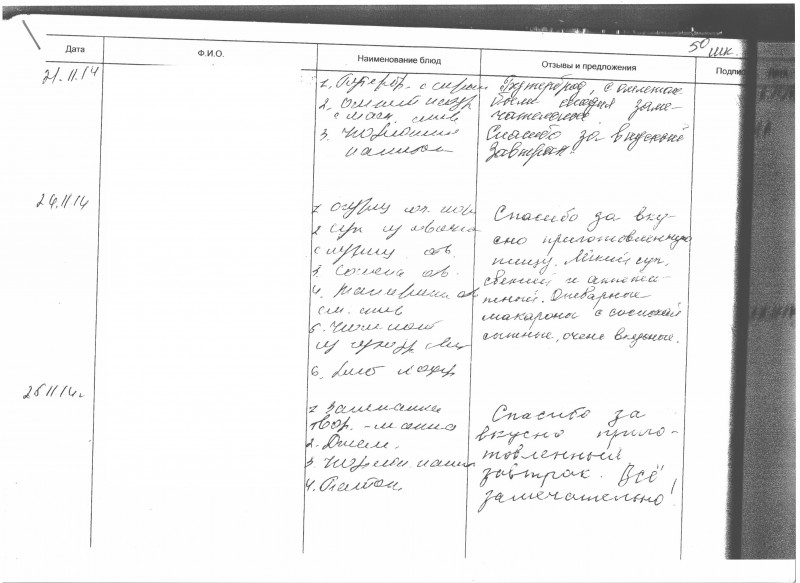 50 шк.
Дата Ф.И.О. Наименование блюд Отзывы и предложения Подпис
21.11.14
1. Бутербр. с сыром
2. омлет натур
с масл. слив
3. Кофейный
напиток
Бутерброд, с омлетом
были сегодня заме-
чательные.
Спасибо за вкусный
Завтрак!
24.11.14
1. огурец
2 суп из
с курицей отв.
3. Сосиска отв.
4. Макароны отв
см. слив
5.
из
6. Хлеб
Спасибо за вку-
сно приготовленную
пищу. Лёгкий суп,
свежий и аппети-
тный. Отварные
макароны с сосиской
сытные, очень вкусные.
25.11.14г
1 Запеканка
твор. - манная
2. Джем.
3. Кофейн. напит
4. Батон
Спасибо за
вкусно приго-
товленный
завтрак. Всё
замечательно!